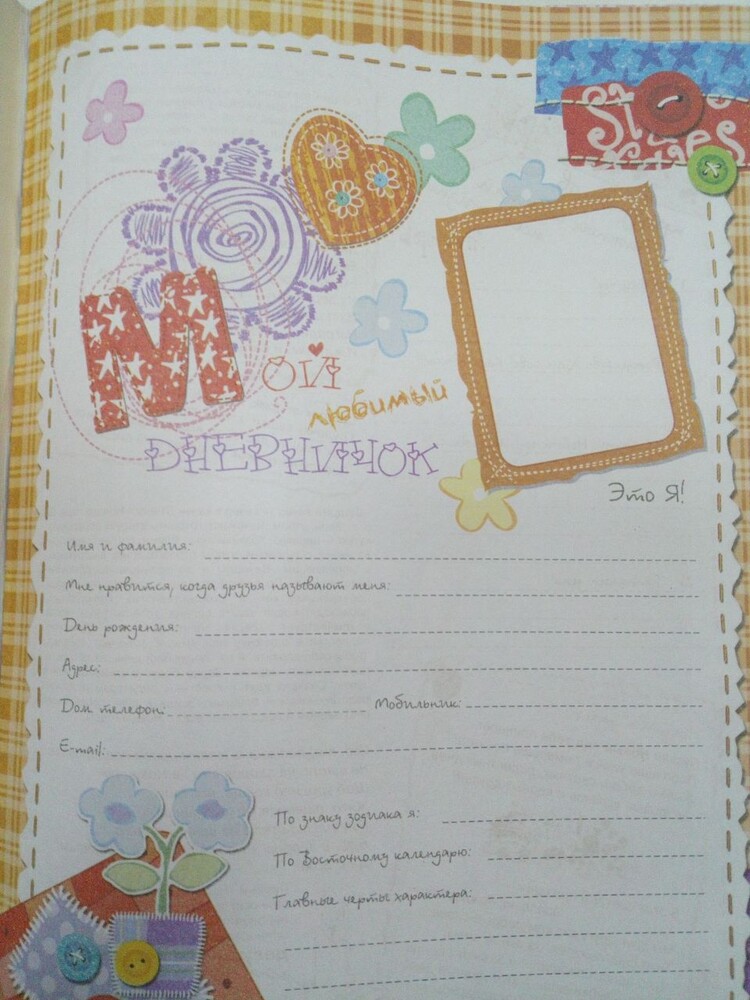 Мой
любимый
дневничок
Это Я!
Имя и фамилия:
Мне нравится, когда друзья называют меня:
День рождения:
Адрес:
Дом. телефон:
Мобильник:
E-mail:
По знаку зодиака я:
По Восточному календарю:
Главные черты характера: